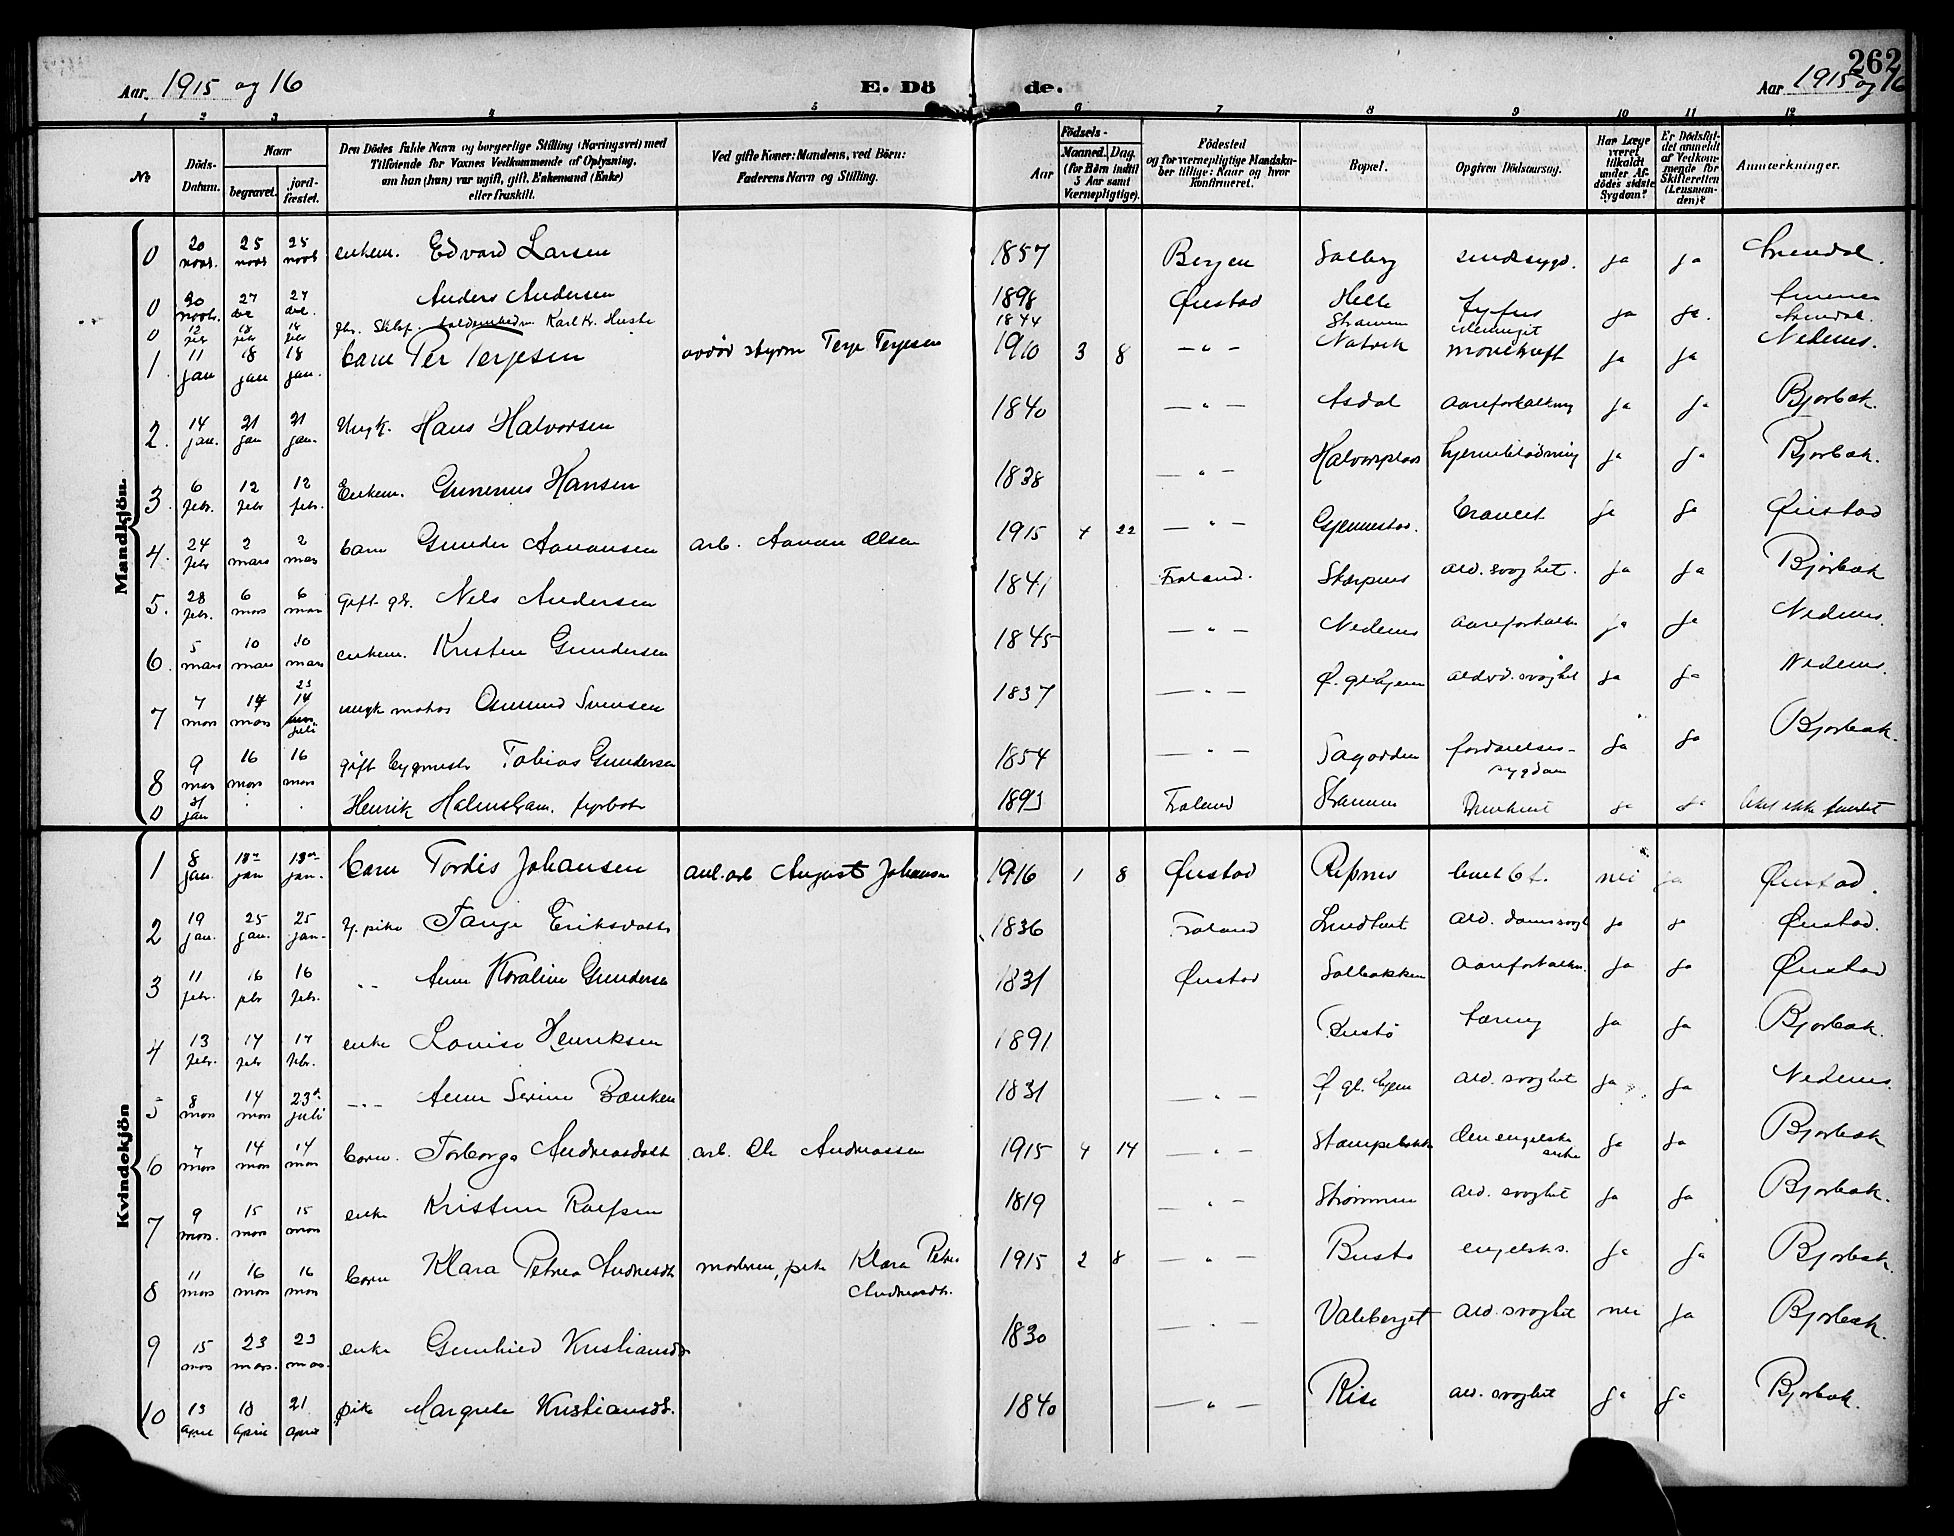 262
Aar. 1915 og 16
E. Dö de.
Aar 1915 og 16
1 2 3 4 5 6 7 8 9 10 11 12
No
Döds-Datum.
Naar
begravet.
jord-fæstet.
Den Dödes fulde Navn og borgerlige Stilling (Næringsvei) med
Tilföiende for Voxnes Vedkommende af Oplysning,
om han (hun) var ugift, gift, Enkemand (Enke)
eller fraskilt.
Ved gifte Koner: Mandens, ved Börn:
Faderens Navn og Stilling.
Födsels-
Aar
Maaned. Dag.
(for Børn indtil
5 Aar samt
Værnepligtige).
Födested
og for værnepligtige Mandska-
ber tillige: Naar og hvor
Konfirmeret.
Bopæl.
Opgiven Dödsaarsag.
Har Læge
været
tilkaldt
under Af-
dödes sidste
Sygdom?
Er Dödsfal-
det anmeldt
af Vedkom-
mende for
Skifteretten
(Lensman-
den)?
Anmærkninger.
Mandkjön.
0 20 novb. 25 novb 25 novb enkem. Edvard Larsen 1857 Bergen Solberg sindssygd. ja ja
0 20 novb. 27 27 Anders Andersen 1898 Øiestad Helle tyfus ja ja
0 12 febr 18 febr 18 febr Karl Kr. 1844
1. 11 jan 18 jan 18 jan. barn Per Terjesen Terje Terjesen 1910 3 8 — " — Natvik ja ja Nedenes.
2. 14 jan. 21 jan 21 jan. Ungk. Hans Halvorsen 1840 — " — Asdal aareforkalkning ja ja Bjorbæk.
3. 6 febr. 12 febr 12 febr. Enkem. Gunenus Hansen 1838 — " — Halvorsplass hjerneblødning ja ja Bjorbæk.
4. 24 febr 2 mars 2 mars barn Gunder Aanonsen arb. Aanon Olsen 1915 4 22 — " — ja ja Øiestad
5. 28 febr. 6 mars 6 mars gift Nils Andersen 1841 Froland. ald. svaghet. ja ja Bjorbæk
6. 5 mars 10 mars 10 mars enkem. Kristen Gundersen 1845 — " — Nedenes aareforkalkn ja ja Nedenes.
7 7 mars 14 mars 23 juli ungk Osmund Svensen 1837 — " — Ø. gl. hjem alderd. svaghet ja ja Nedenes.
8 9 mars 16 mars 16 mars gift bygmestr Tobias Gundersen 1854 — " — Sagodden fordøielses-sygdom ja ja Bjorbæk.
0 31 jan Henrik fyrbøter 1893 Froland Druknet ja ja liket ikke fundet
Kvindekjön
1 8 jan. 13 jan 13 jan. barn Tordis Johansen August Johansen 1916 1 8 Øiestad nei ja Øiestad.
2 19 jan. 25 jan. 25 jan. pike Tanje Eriksdatt 1836 Froland ja ja Øiestad.
3 11 febr. 16 febr 16 febr. " Anne Karoline Gundersen 1831 Øiestad Solbakken aareforkalkn. ja ja Øiestad
4 13 febr. 17 febr 17 febr. enke Lovise Henriksen 1891 Bustø tæring ja ja Bjorbæk.
5 8 mars 14 mars 23 juli — " — Anne Serine 1831 — " — Ø. gl. hjem ald. svaghet ja ja Nedenes.
6 7 mars 14 mars 14 mars barn. Torborg Andreasdatt arb. Ole Andreassen 1915 4 14 — " — den engelske syke ja ja Bjorbæk
7 9 mars. 15 mars 15 mars enke Kristine Roefsen 1819 — " — Strømmen ald. svaghet ja ja Bjorbæk.
8 11 mars 16 mars 16 mars barn Klara Petrea Andreasdtr moderen, pike Klara Petrea Andreasdtr. 1915 2 8 — " — Bustø engelsk s. ja ja Bjorbæk.
9 15 mars 23 mars. 23 mars. enke Gunhild Kristiansdtr 1830 — " — Valeberget ald. svaghet nei ja Bjorbæk.
10 13 april 18 april 21 april pike Margrete Kristiansdtr. 1840 — " — Rise ald. svaghet ja ja Bjorbæk.